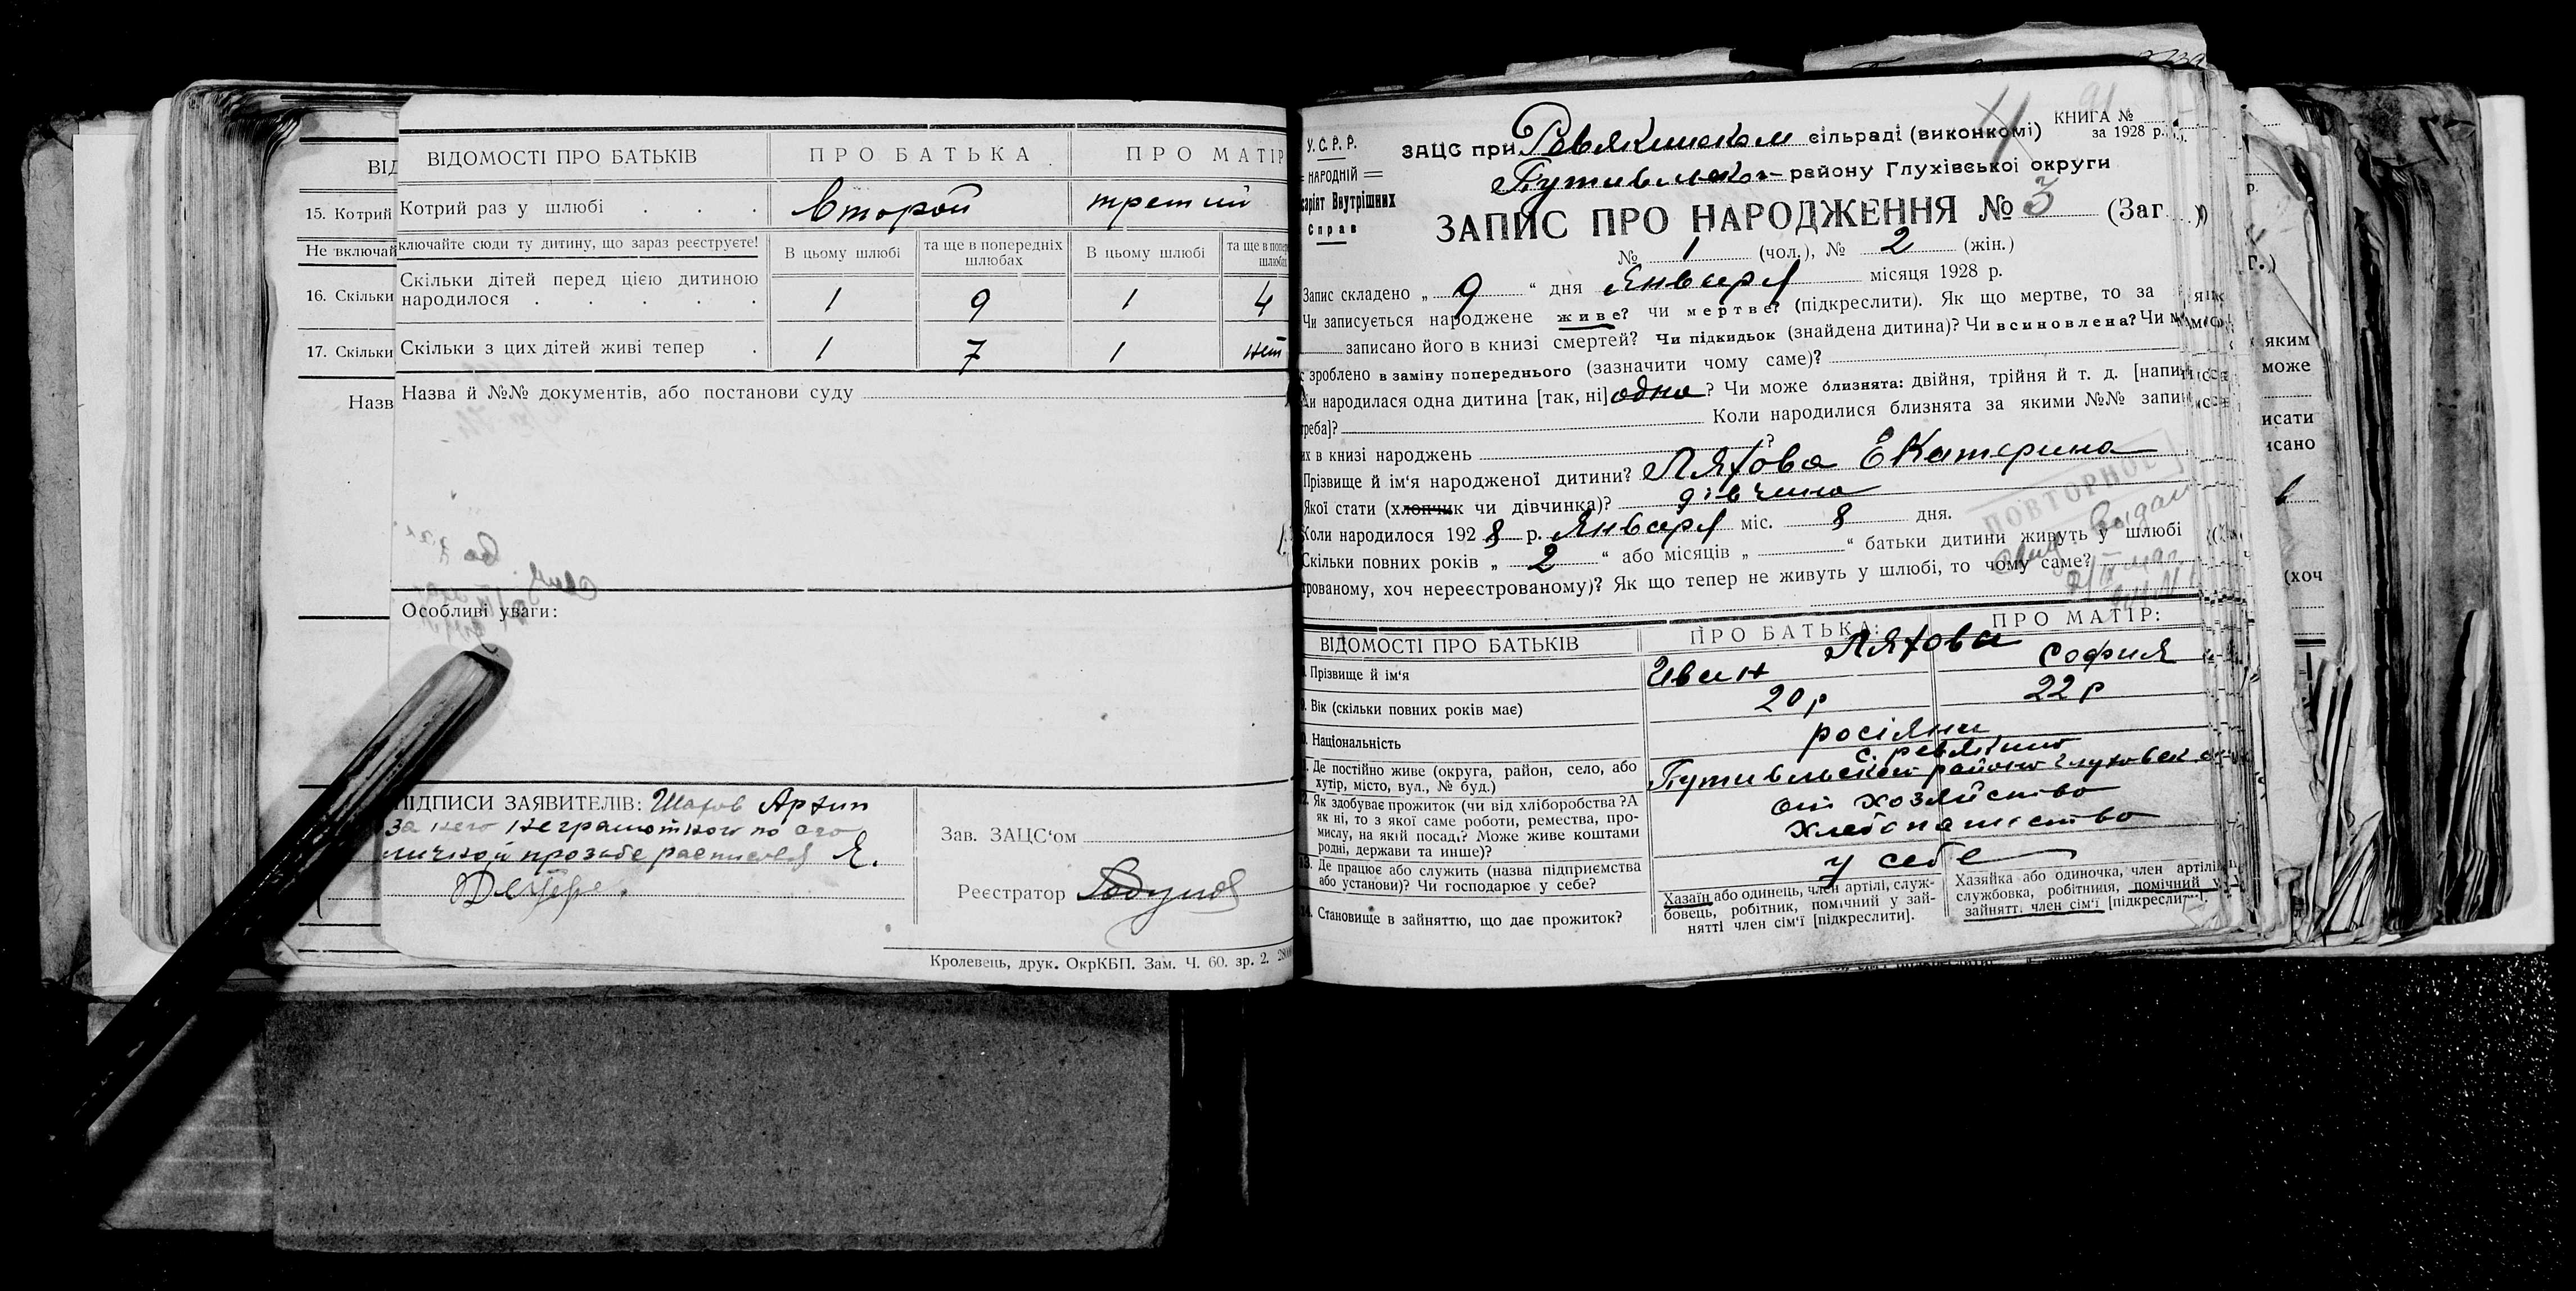 ВІДОМОСТІ ПРО БАТЬКІВ
ПРО БАТЬКА
ПРО МАТІР
15. Котрий
Котрий раз у шлюбі . . .
второй
третий
Не включай
ключайте сюди ту дитину, що зараз реєструєте!
В цьому шлюбі
та ще в попередніх шлюбах
В цьому шлюбі
та ще в попе
шлюбах
16. Скільки
Скільки дітей перед цією дитиною
народилося . . . . .
1 9 1 4
17. Скільки
Скільки з цих дітей живі тепер .
1 7 1 нет
Назв
Назва й №№ документів, або постанови суду
Особливі уваги:
ПІДПИСИ ЗАЯВИТЕЛІВ: Шахов Архип
за него неграмотного по его
личной прозьбе расписался Я.
Зав. ЗАЦС‘ом
Реєстратор
Кролевець, друк. ОкрКБП. Зам. Ч. 60. зр. 2.
У.С.Р.Р.
НАРОДНІЙ
Внутрішних
Справ
КНИГА №
за 1928 р.
ЗАЦС при Ревякинском сільраді (виконкомі)
Путивльског району Глухівської округи
ЗАПИС ПРО НАРОДЖЕННЯ № 3 (Заг )
№ 1 (чол.), № 2 (жін.)
Запис складено „ 9 “ дня Января місяця 1928 р.
Чи записується народжене живе? чи мертве? (підкреслити). Як що мертве, то за
записано його в книзі смертей? Чи підкидьок (знайдена дитина)? Чи всиновлена? Чи
зроблено в заміну попереднього (зазначити чому саме)?
Чи народилася одна дитина [так, ні] одна? Чи може близнята: двійня, трійня й т. д. [напи
треба]? Коли народилися близнята за якими №№ запи
их в книзі народжень ?
Прізвище й ім‘я народженої дитини? Ляхова Екатерина
Якої стати (хлопчик чи дівчинка)? дівчина
Коли народилося 1928 р. Января міс. 8 дня.
Скільки повних років „ 2 “ або місяців „ “ батьки дитини живуть у шлюбі
трованому, хоч нереєстрованому)? Як що тепер не живуть у шлюбі, то чому саме?
ПОВТОРНОЕ
выдан
ВІДОМОСТІ ПРО БАТЬКІВ
ПРО БАТЬКА:
ПРО МАТІР:
Ляхова
Прізвище й ім‘я
Иван
София
Вік (скільки повних років має)
20 р
22 р
Національність
росіяни
Де постійно живе (округа, район, село, або
хутір, місто, вул., № буд.)
с. ревякино
Путивльского района Глуховск о
Як здобуває прожиток (чи від хліборобства? А
як ні, то з якої саме роботи, ремества, про-
мислу, на якій посаді? Може живе коштами
родні, держави та инше)?
от хозяйство
хлебопашество
13. Де працює або служить (назва підприємства
або установи)? Чи господарює у себе?
у себе
14. Становище в зайняттю, що дає прожиток?
Хазаїн або одинець, член артілі, служ-
бовець, робітник, помічний у зай-
нятті член сім‘ї [підкреслити].
Хазяйка або одиночка, член артілі
службовка, робітниця, помічний у
зайнятті член сім‘ї [підкреслити].
яким
може
исати
исано
(хоч